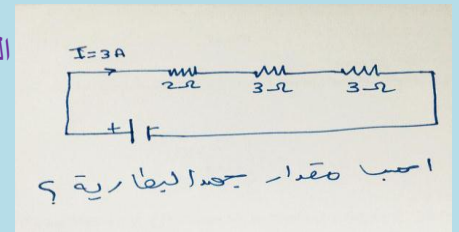 I=3A
2Ω 3Ω 3Ω
+
احسب مقدار جهد البطارية ؟